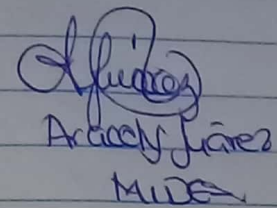 AJuárez
Aracely Juárez
MIDES